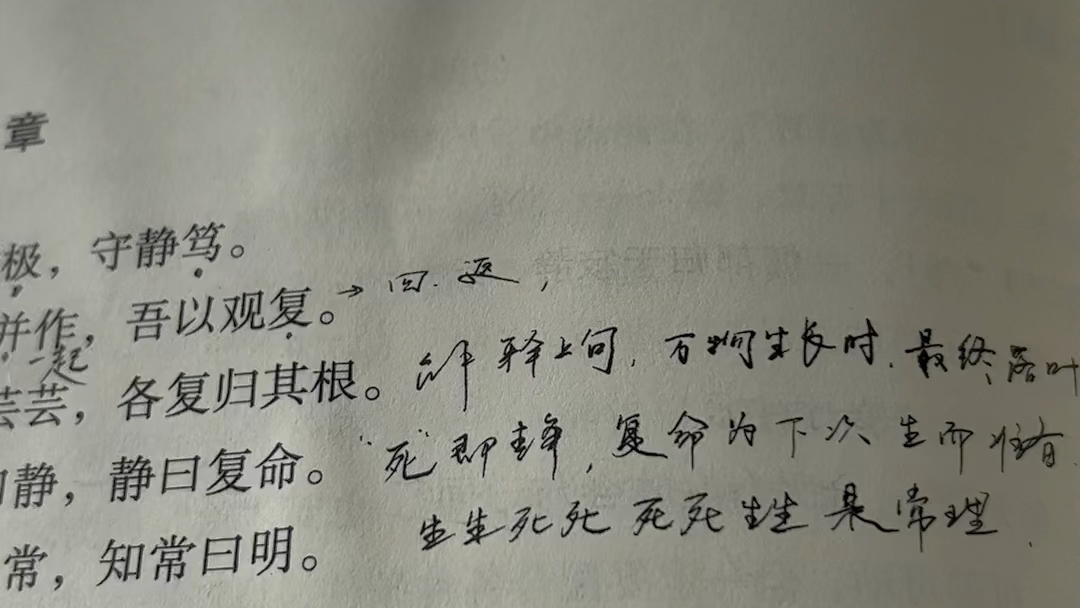 章
极，守静笃。
并作，吾以观复。→ 回.返，
一起
芸芸，各复归其根。 解释上句，万物生长时，最终落叶
静，静曰复命。 "死"即静，复命为下次生而准备
常，知常曰明。 生生死死 死死生生 是常理.